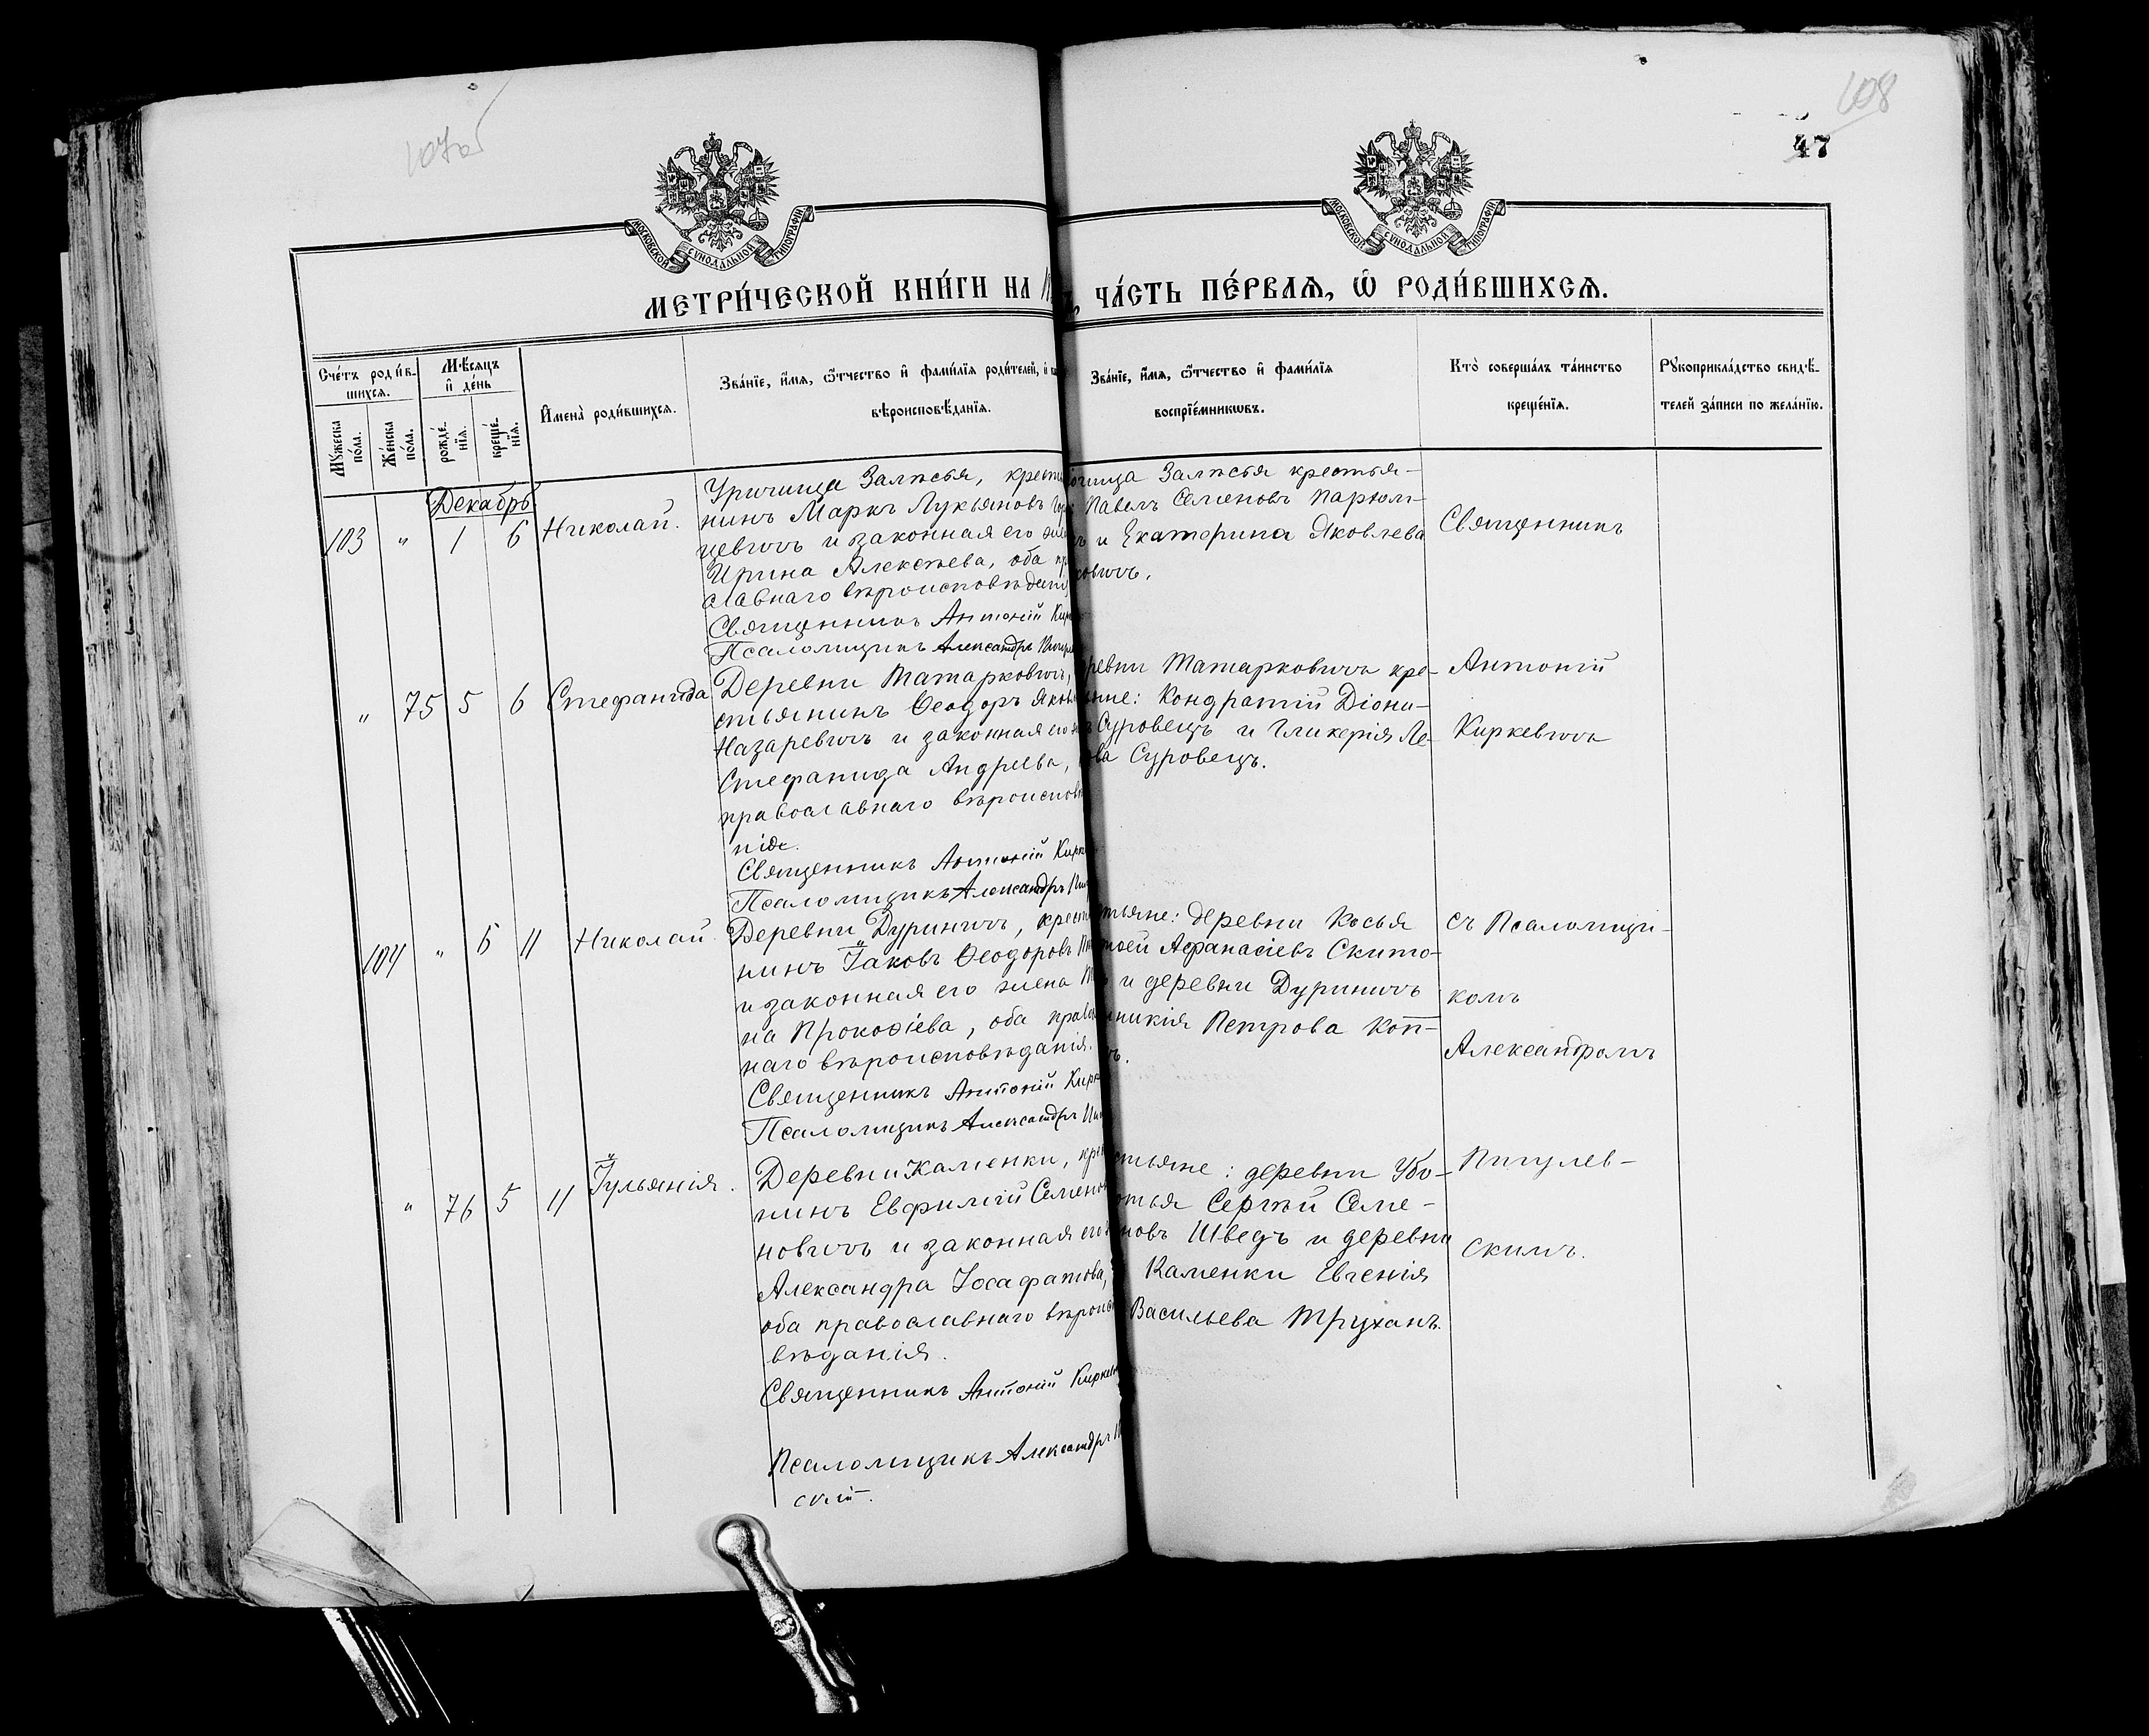 107об
108
47
МОСКОВСКОЙ СѴНОДАЛЬНОЙ ТИПОГРАФІИ
МОСКОВСКОЙ СѴНОДАЛЬНОЙ ТИПОГРАФІИ
МЕТРИ́ЧЕСКОЙ КНИ́ГИ НА
ЧА́СТЬ ПЕ́РВАѦ, Ѽ РОДИ́ВШИХСѦ.
Сче́тъ роди́в-
шихсѧ.
Мѣ́сѧцъ
и҆ де́нь
Мꙋ́жеска по́ла.
Же́нска по́ла.
рожде́-
нїѧ.
креще́-
нїѧ.
И҆мена̀ роди́вшихсѧ.
Зва́нїе, и҆́мѧ, ѻ҆́тчество и҆ фами́лїѧ роди́телей, и҆
вѣроисповѣ́данїѧ.
Зва́нїе, и҆́мѧ, ѻ҆́тчество и҆ фами́лїѧ
воспрїе́мникѡвъ.
Кто̀ соверша́лъ та́инство
креще́нїѧ.
Рꙋкоприкла́дство свидѣ́-
телей за́писи по жела́нїю.
Декабрь
103 " 1 6 Николай.
Уричища Залѣсья,
нинъ Маркъ Лукьяновъ
цевичъ и законная его
Ирина Алексѣева, оба
славнаго вѣроисповѣданія
Священникъ Антоній
Псаломщикъ Александръ
Залѣсья крестья-
Павелъ Семеновъ Парюм-
и Екатерина Яковлева
Священникъ
" 75 5 6 Стефанида
Деревни Татарковичъ,
стьянинъ Ѳеодоръ
Назаревичъ и законная его
Стефанида Андреева,
православнаго
нія.
Священникъ Антоній
Псаломщикъ Александръ
Татарковичъ кре-
Кондратій Діони-
Суровецъ и Гликерія Ле-
Суровецъ.
Антоній
Киркевичъ
104 " 5 11 Николай
Деревни Дуриничъ,
нинъ Іаковъ Ѳеодоровъ
и законная его жена
на Прокофіева, оба
наго вѣроисповѣданія.
Священникъ Антоній
Псаломщикъ Александръ
деревни Косья
Афанасіевъ Скито-
и деревни Дуриничъ
Петрова Коп-
съ Псаломщи-
комъ
Александромъ
" 76 5 11 Іульянія.
Деревни Каменки,
нинъ Евфимій
новичъ и законная
Александра Іосафатова,
оба православнаго
вѣданія.
Священникъ Антоній
Псаломщикъ Александръ
скій.
деревни Убо-
Сергѣй Семе-
новъ Шведъ и деревни
Каменки Евгенія
Васильева Труханъ.
Пигулев-
скимъ.